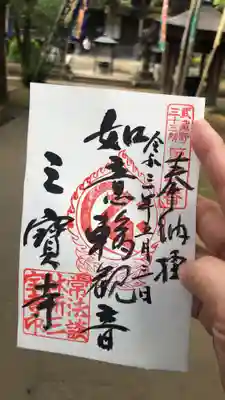 武蔵野
三十三
奉納経
令和三年二月三日
如意輪観音
三寳寺